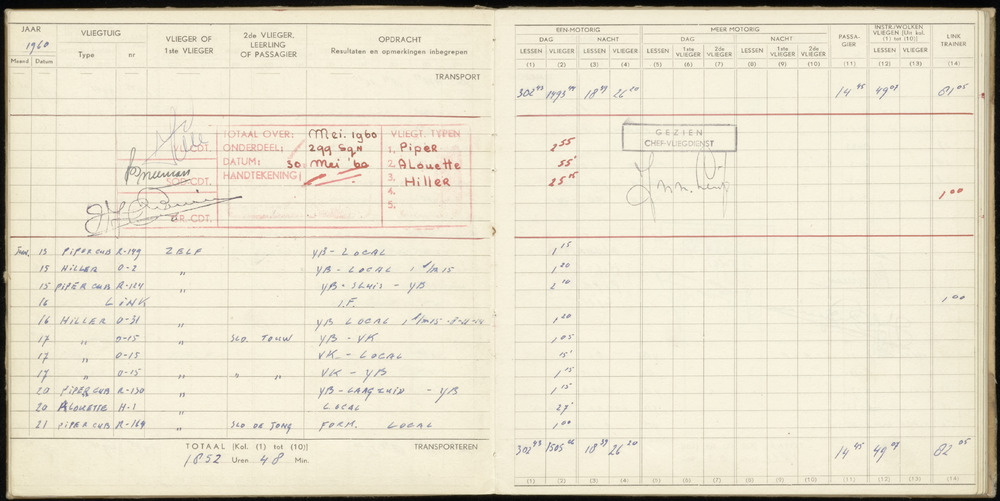 JAAR
1960
Maand Datum
VLIEGTUIG
Type nr
VLIEGER OF
1ste VLIEGER
2de VLIEGER,
LEERLING
OF PASSAGIER
OPDRACHT
Resultaten en opmerkingen inbegrepen
TRANSPORT
TOTAAL OVER: Mei. 1960
ONDERDEEL: 299 Sqn
DATUM: 30 Mei '60
HANDTEKENING:
VLIEGT. TYPEN
1. Piper
2. Alouette
3. Hiller
4.
5.
CDT.
SQD CDT.
GR. CDT.
13 PIPERCUB R-199 ZELF YB - LOCAL
15 HILLER O-2 " YB - LOCAL
15 PIPER CUB R-124 " YB - SLUIS - YB
16 LINK I.F.
16 HILLER O-31 " YB LOCAL
17 " O-15 " SLD. TOUW YB - VK
17 " O-15 VK - LOCAL
17 " O-15 " " " VK - YB
20 PIPER CUB R-130 " YB - LAAG ZUID - YB
20 ALOUETTE H-1 " LOCAL
21 PIPER CUB R-169 " SLD DE JONG FORM. LOCAL
TOTAAL (Kol. (1) tot (10))
1852 Uren 48 Min.
TRANSPORTEREN
EEN-MOTORIG
MEER MOTORIG
DAG NACHT DAG NACHT
LESSEN VLIEGER LESSEN VLIEGER LESSEN 1ste VLIEGER 2de VLIEGER LESSEN 1ste VLIEGER 2de VLIEGER
PASSA-
GIER
INSTR./WOLKEN
VLIEGEN (Uit kol.
(1) tot (10))
LESSEN VLIEGER
LINK
TRAINER
(1) (2) (3) (4) (5) (6) (7) (8) (9) (10) (11) (12) (13) (14)
302 43 1493 44 18 39 26 20 14 45 49 08 81 05
GEZIEN
CHEF-VLIEGDIENST
2 55
55
25 15
1 00
1 15
1 20
2 10
1 00
1 20
1 05
15
1 15
1 15
27
1 00
302 43 1505 06 18 39 26 20 14 45 49 08 82 05
(1) (2) (3) (4) (5) (6) (7) (8) (9) (10) (11) (12) (13) (14)